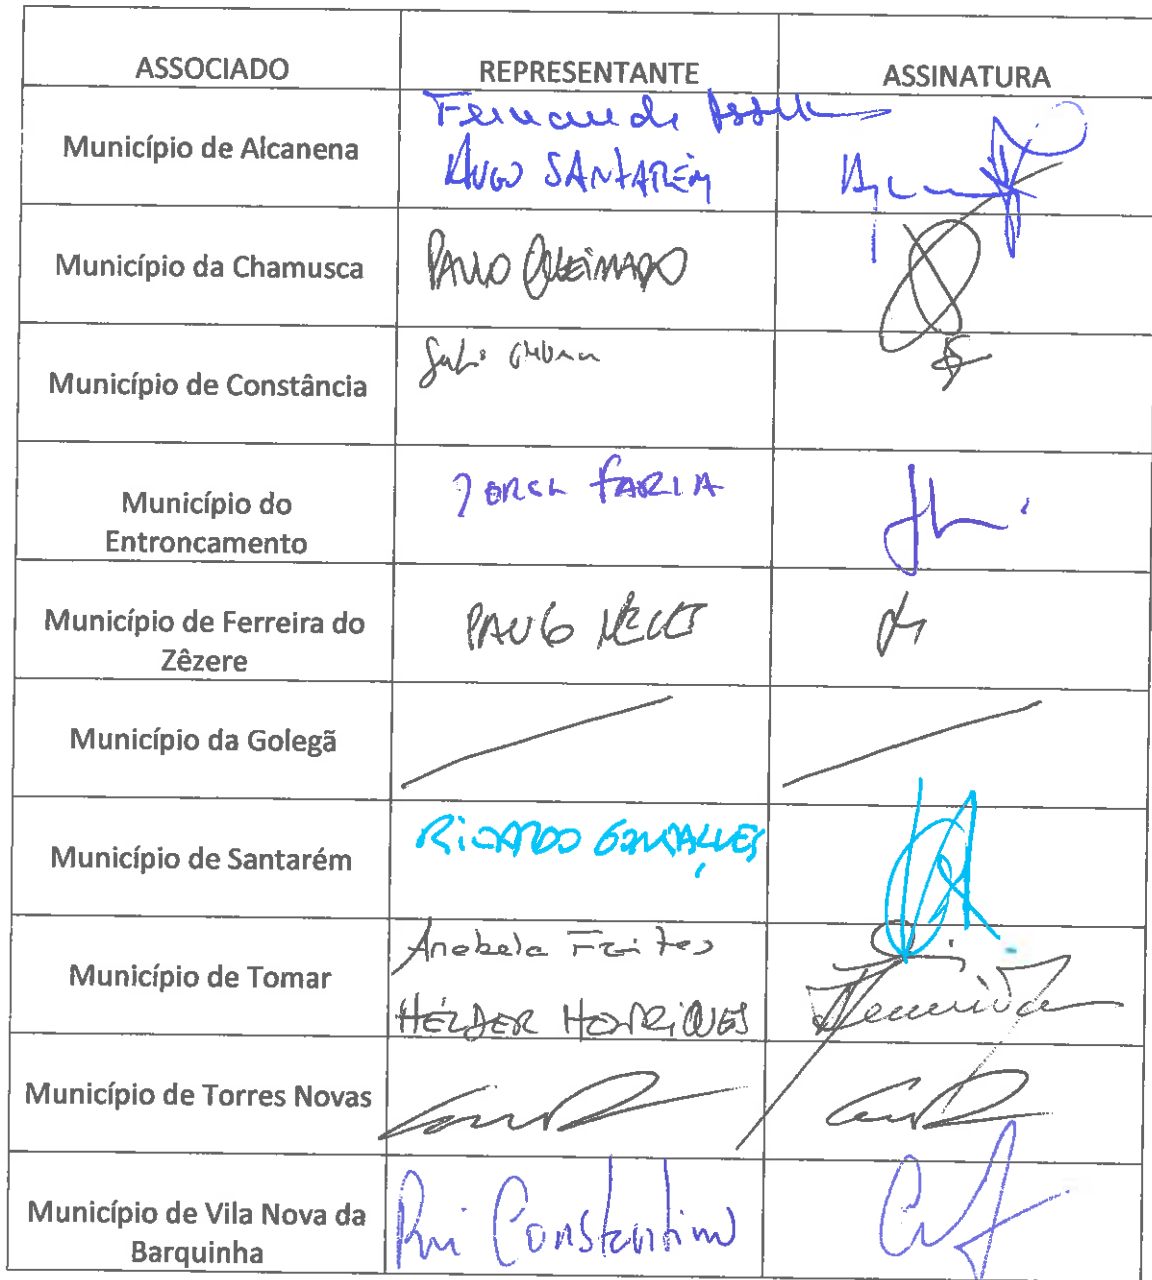 ASSOCIADO REPRESENTANTE ASSINATURA
Município de Alcanena
HUGO SANTARÉM
Município da Chamusca PAULO QUEIMADO
Município de Constância
Município do
Entroncamento
JORGE FARIA
Município de Ferreira do
Zêzere
PAULO NEVES
Município da Golegã
Município de Santarém RICARDO GONÇALVES
Município de Tomar
Anabela Freitas
HÉLDER HENRIQUES
Município de Torres Novas
Município de Vila Nova da
Barquinha
Rui Constantino